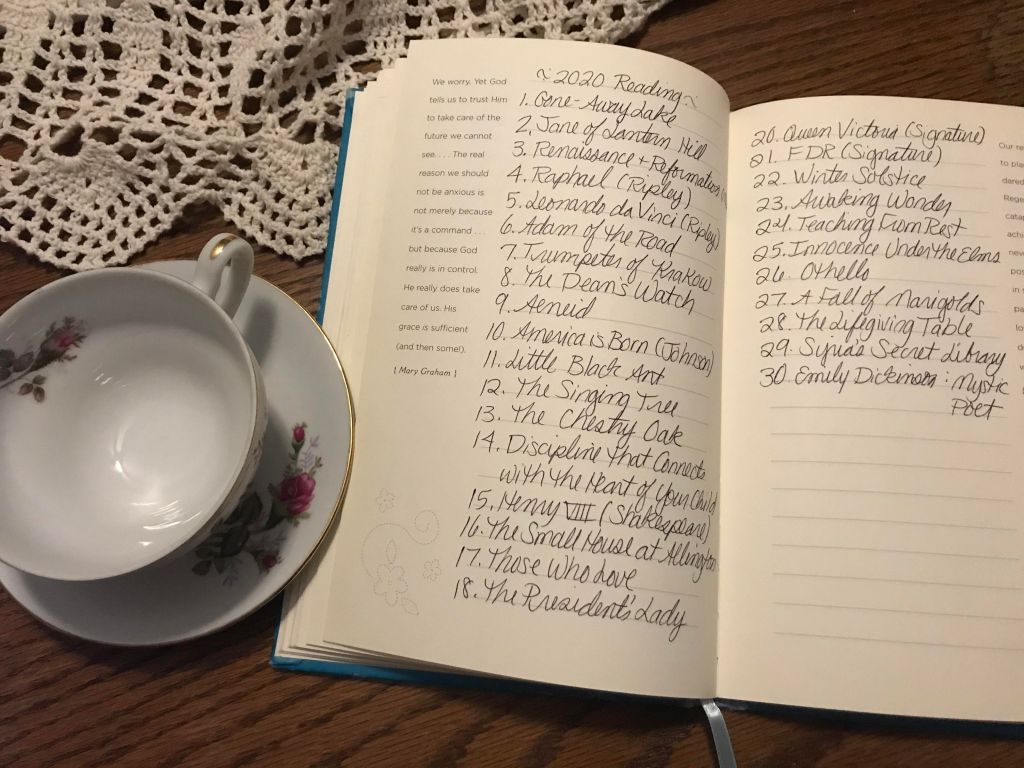 We worry. Yet God
tells us to trust Him
to take care of the
future we cannot
see. . . . The real
reason we should
not be anxious is
not merely because
it's a command . . .
but because God
really is in control.
He really does take
care of us. His
grace is sufficient
(and then some!).
{ Mary Graham }
~ 2020 Reading ~
1. Gone-Away Lake
2. Jane of Lantern Hill
3. Renaissance + Reformation
4. Raphael (Ripley)
5. Leonardo da Vinci (Ripley)
6. Adam of the Road
7. Trumpeter of Krakow
8. The Dean's Watch
9. Aeneid
10. America is Born (Johnson)
11. Little Black Ant
12. The Singing Tree
13. The Chestry Oak
14. Discipline That Connects
with the Heart of Your Child
15. Henry VIII (Shakespeare)
16. The Small House at Allington
17. Those Who Love
18. The President's Lady
20. Queen Victoria (Signature)
21. FDR (Signature)
22. Winter Solstice
23. Awaking Wonder
24. Teaching From Rest
25. Innocence Under the Elms
26. Othello
27. A Fall of Marigolds
28. The Lifegiving Table
29. Syria's Secret Library
30. Emily Dickinson: Mystic
Poet
Our re
to pla
dared
Rege
cata